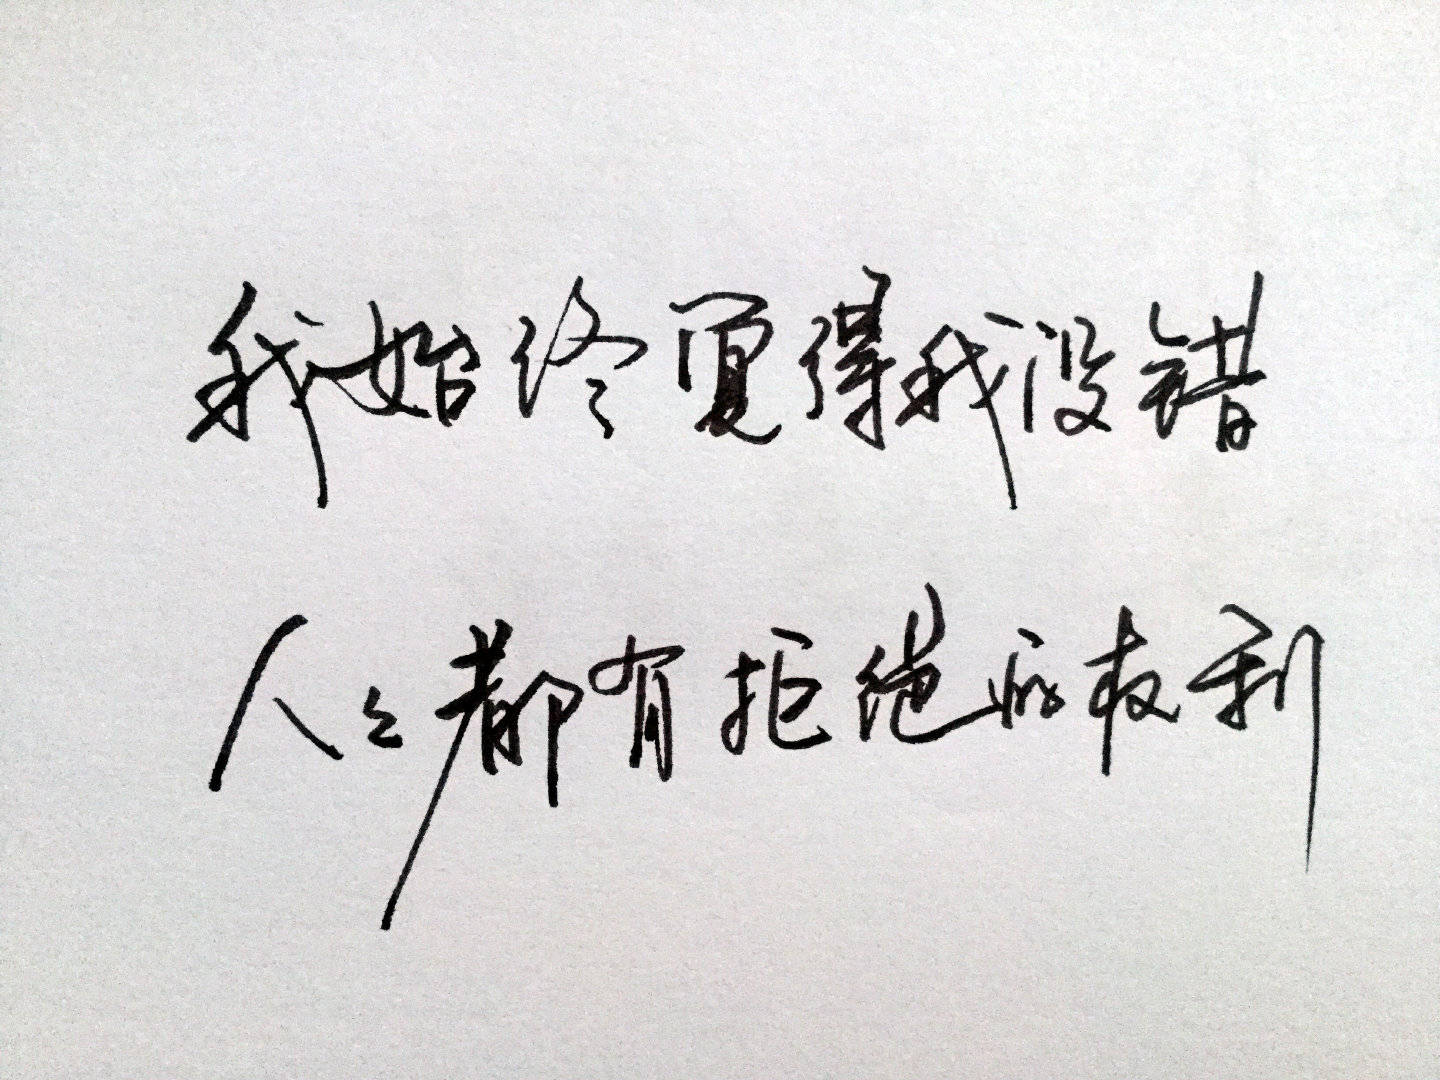 我始终觉得我没错
人々都有拒绝的权利